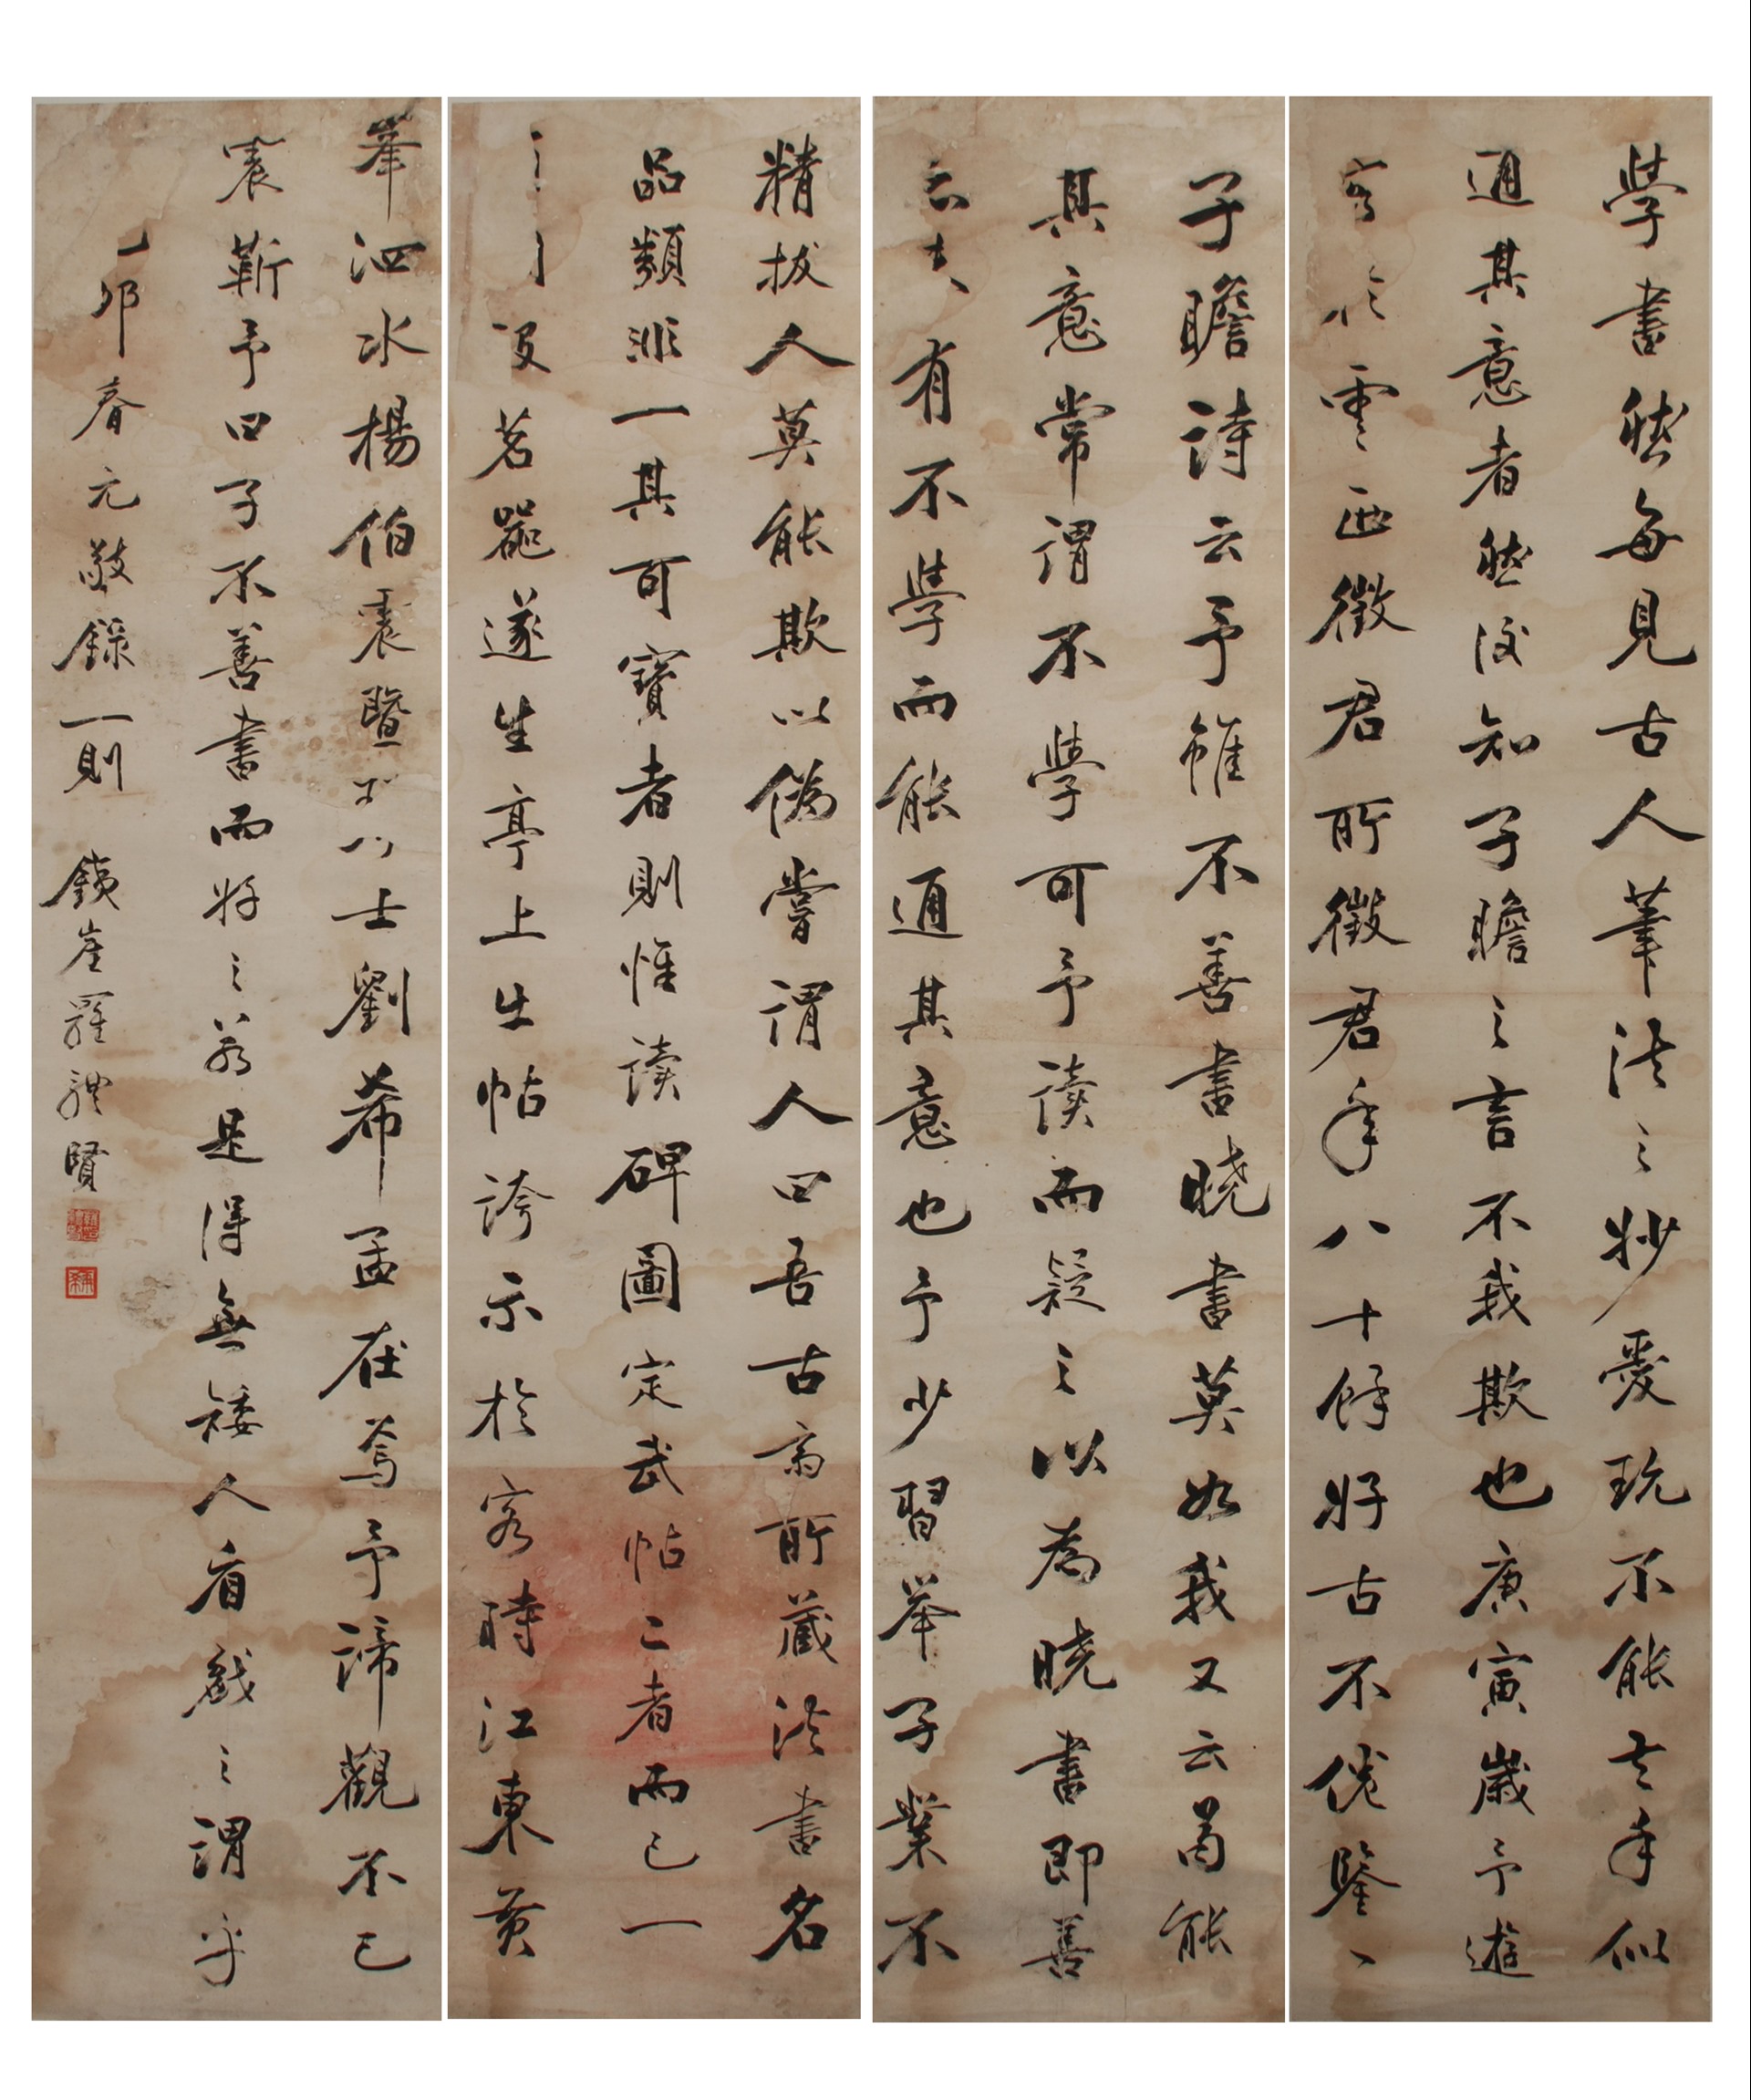 學書然每見古人筆法之妙愛玩不能去手似
通其意者然後知子瞻之言不我欺也庚寅歲予遊
於雲西徵君所徵君年八十餘好古不倦鑒
子瞻詩云予雖不善書曉書莫如我又云苟能
其意常謂不學可予讀而疑之以為曉書即善
云夫有不學而能通其意也予少習舉子業不
精拔人莫能欺以偽嘗謂人曰吾古齋所藏法書名
品類非一其可寶者則惟讀碑圖定武帖二者而已一
設茗器遂坐亭上出帖誇示於客時江東黃
舉泗水楊伯震暨士劉希孟在焉予諦觀不已
震靳予曰子不善書而好之若是得無矮人看戲之謂乎
乙卯春元敬錄一則 鐵崖羅禮賢